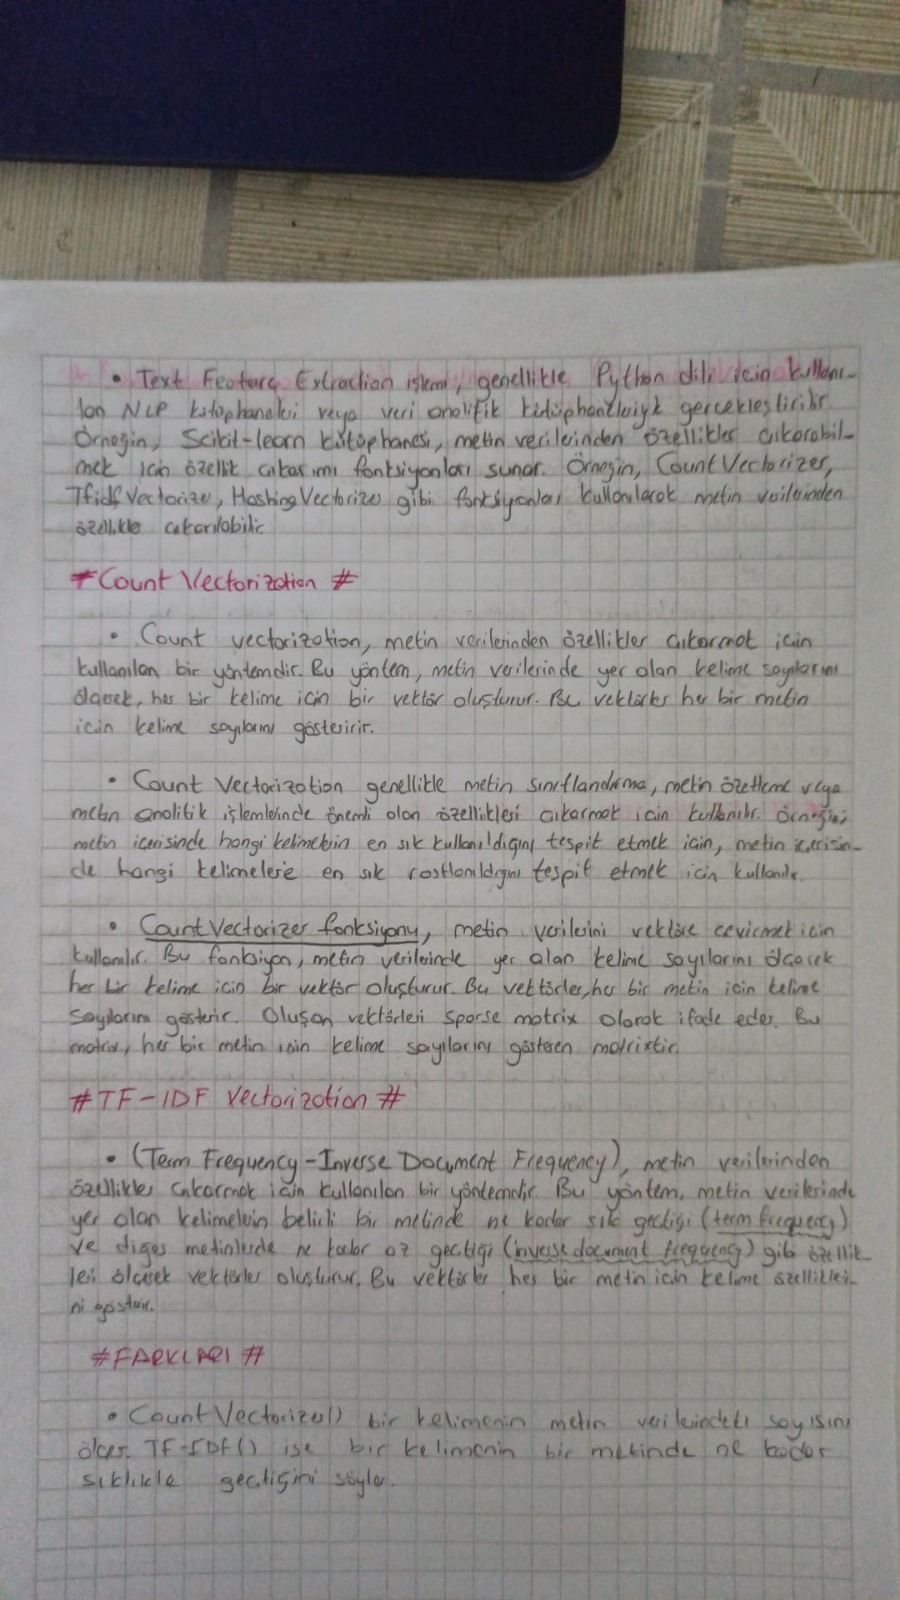 • Text Feature Extraction işlemi, genellikle Python dili için kullanı-
lan NLP kütüphaneleri veya veri analitik kütüphaneleriyle gerçekleştirilir.
Örneğin, Scikit-learn kütüphanesi, metin verilerinden özellikler çıkarabil-
mek için özellik çıkarımı fonksiyonları sunar. Örneğin, CountVectorizer,
TfidfVectorizer, HashingVectorizer gibi fonksiyonlar kullanılarak metin verilerinden
özellikler çıkarılabilir.
# Count Vectorization #
• Count vectorization, metin verilerinden özellikler çıkarmak için
kullanılan bir yöntemdir. Bu yöntem, metin verilerinde yer alan kelime sayılarını
ölçerek, her bir kelime için bir vektör oluşturur. Bu vektörler her bir metin
için kelime sayılarını gösteririr.
• Count Vectorization genellikle metin sınıflandırma, metin özetleme veya
metin analitik işlemlerinde önemli olan özellikleri çıkarmak için kullanılır. Örneğin,
metin içerisinde hangi kelimelerin en sık kullanıldığını tespit etmek için, metin içerisin-
de hangi kelimelere en sık rastlanıldığını tespit etmek için kullanılır.
• CountVectorizer fonksiyonu, metin verilerini vektöre çevirmek için
kullanılır. Bu fonksiyon, metin verilerinde yer alan kelime sayılarını ölçerek
her bir kelime için bir vektör oluşturur. Bu vektörler, her bir metin için kelime
sayılarını gösterir. Oluşan vektörleri sparse matrix olarak ifade eder. Bu
matrix, her bir metin için kelime sayılarını gösteren matrixtir.
# TF-IDF Vectorization #
• (Term Frequency-Inverse Document Frequency), metin verilerinden
özellikler çıkarmak için kullanılan bir yöntemdir. Bu yöntem, metin verilerinde
yer alan kelimelerin belirli bir metinde ne kadar sık geçtiği (term frequency)
ve diğer metinlerde ne kadar az geçtiği (inverse document frequency) gibi özellik-
leri ölçerek vektörler oluşturur. Bu vektörler her bir metin için kelime özellikleri-
ni gösterir.
# FARKLARI #
• CountVectorizer() bir kelimenin metin verilerindeki sayısını
ölçer. TF-IDF() ise bir kelimenin bir metinde ne kadar
sıklıkla geçtiğini söyler.